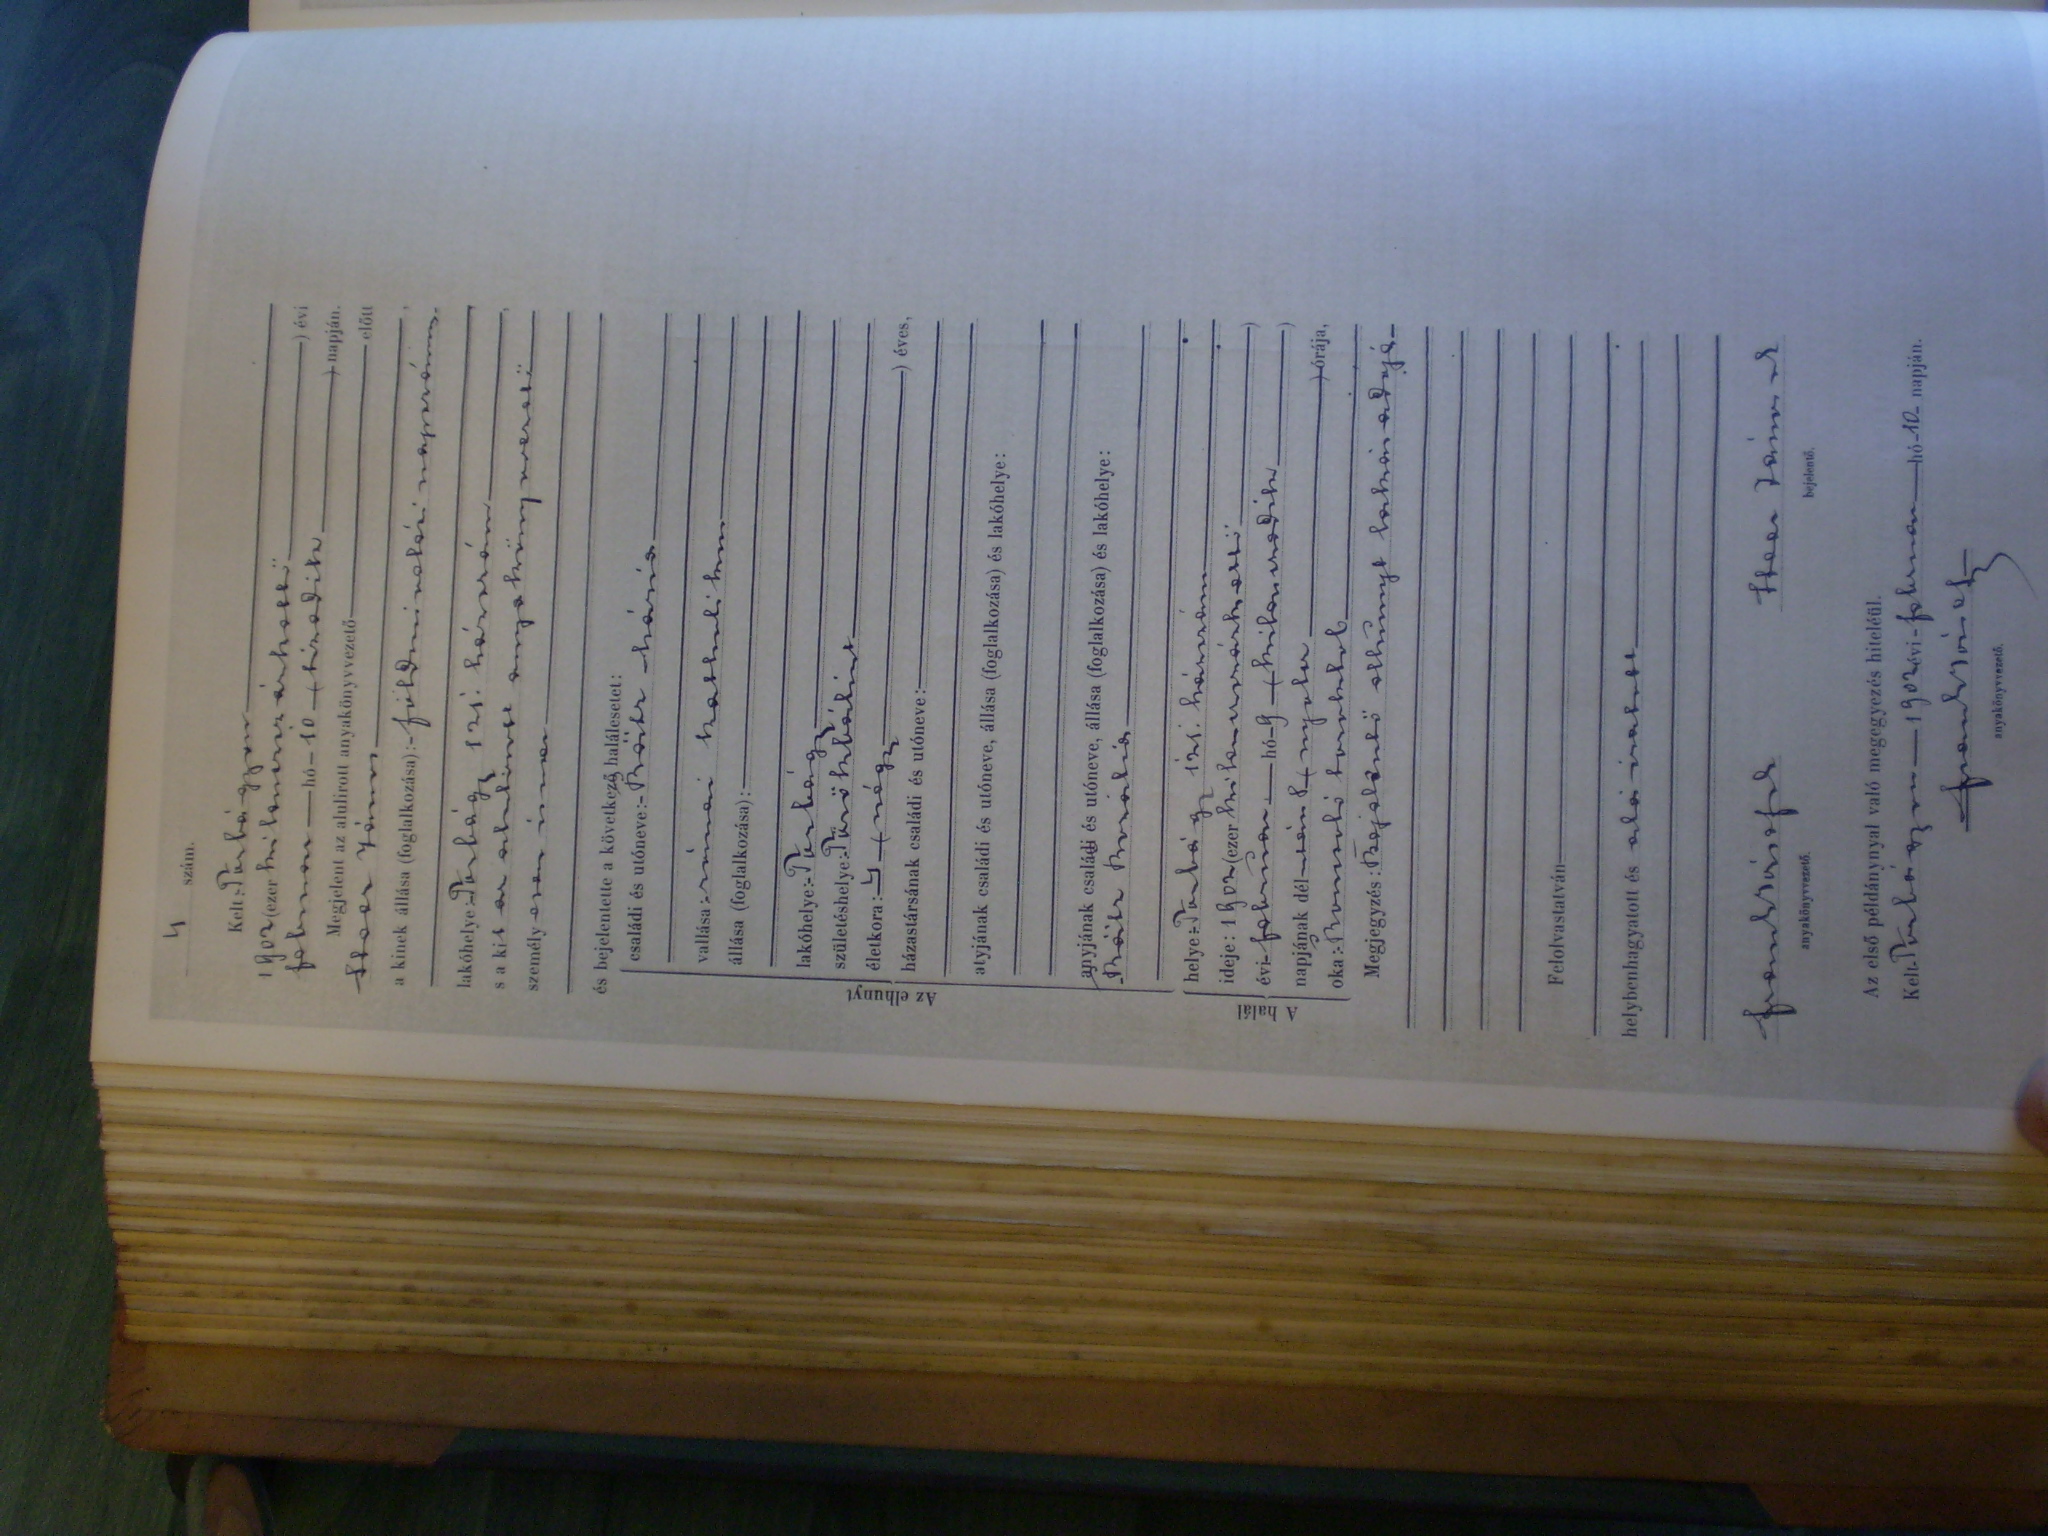 4 szám.
Kelt: Torbágyon
1902 (ezer kilencszáz kettő) évi
február hó 10 (tizedik) napján.
Megjelent az alulirott anyakönyvvezető előtt
János
a kinek állása (foglalkozása): földmívelési napszámos,
lakóhelye: Torbágy 121. házszám
s a kit az alulírott anyakönyvvezető
személyesen ismer
és bejelentette a következő halálesetet:
Az elhunyt
családi és utóneve: Mária
vallása: római katholikus
állása (foglalkozása):
lakóhelye: Torbágy
születéshelye: Törökbálint
életkora: 4 (négy) éves,
házastársának családi és utóneve:
atyjának családi és utóneve, állása (foglalkozása) és lakóhelye:
anyjának családi és utóneve, állása (foglalkozása) és lakóhelye:
Rozália
A halál
helye: Torbágy 121. házszám
ideje: 1902 (ezer kilencszázkettő)
évi február hó 9 (kilencedik)
napjának dél után 8 (nyolc) órája,
oka:
Megjegyzés: Bejelentő elhunyt
Felolvastatván
helybenhagyatott és aláíratott
József János
anyakönyvvezető. bejelentő.
Az első példánynyal való megegyezés hiteléül.
Kelt Torbágyon 1902 évi február hó 10 napján.
József
anyakönyvvezető.